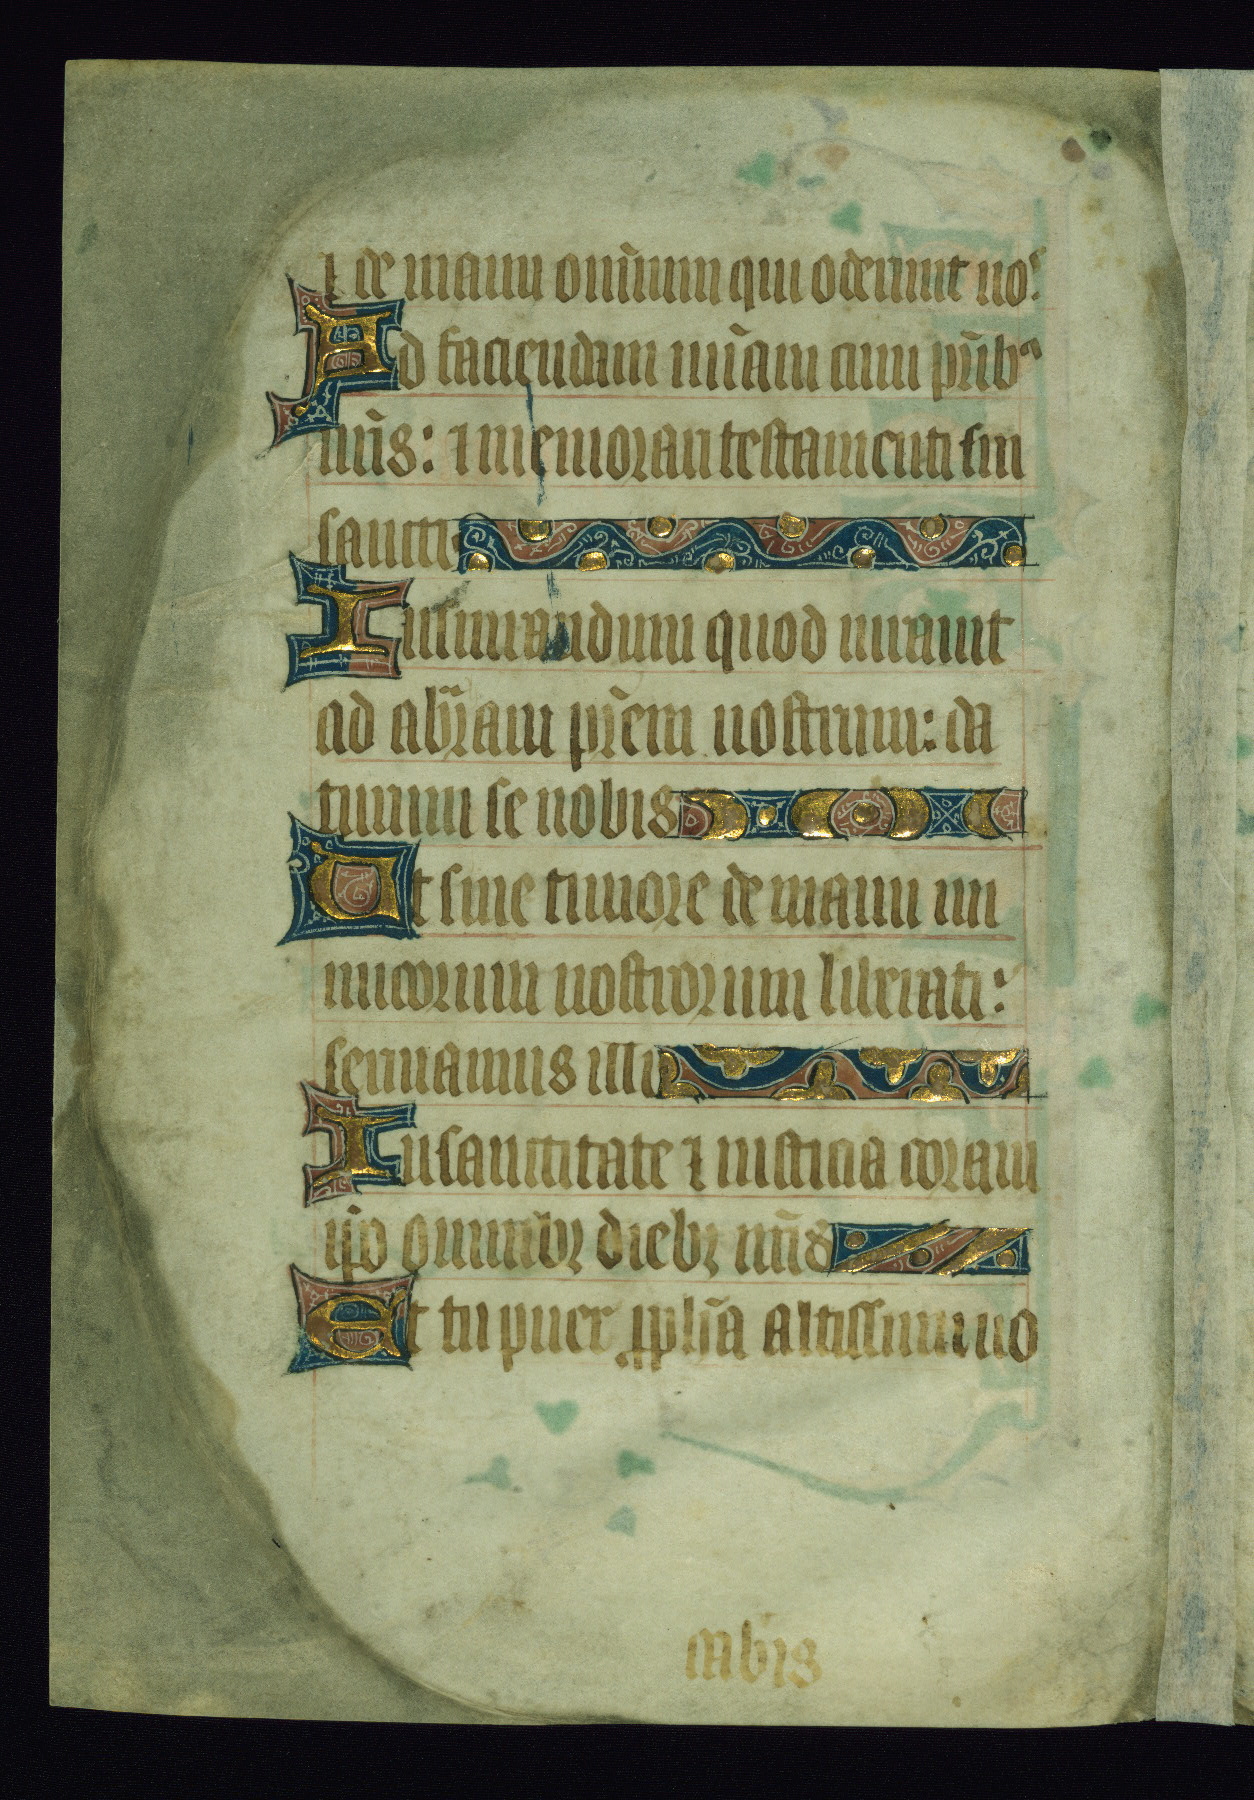 ⁊ de manu om̄ium qui oderunt nos
Ad faciendam mīam cum pr̄ibꝰ
nr̄is: ⁊ memorari testamenti sui
sancti
Iusiurandum quod iurauit
ad abr̄am pr̄em nostrum: da
turum se nobis
Ut sine timore de manu ini
micorum nostrorum liberati:
seruiamus illi
In sanctitate ⁊ iusticia coram
ip̄o omnibꝫ diebꝫ nr̄is
Et tu puer ꝓph̄a altissimi uo
caberis